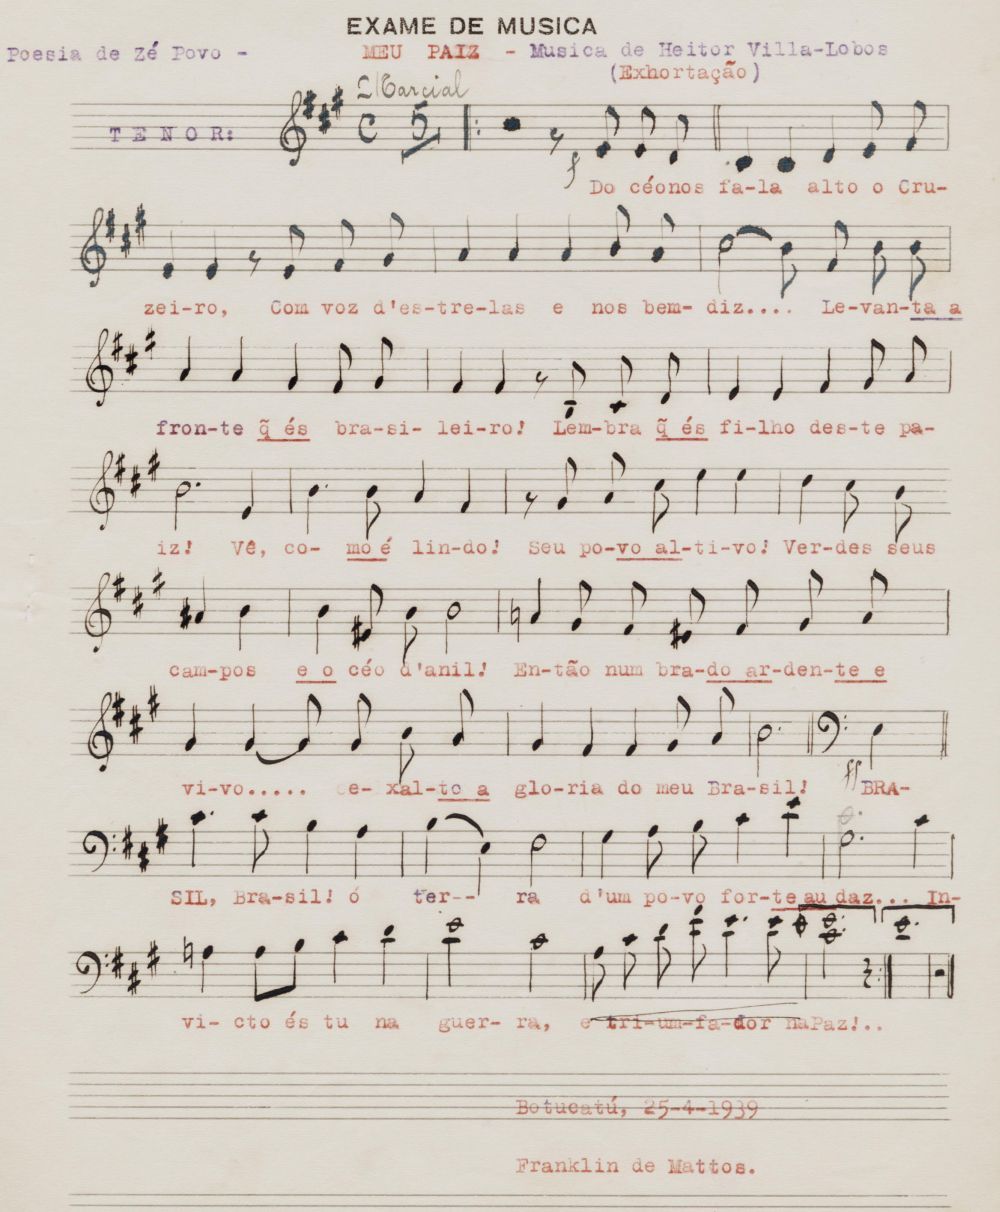 EXAME DE MUSICA
Poesia de Zé Povo - MEU PAIZ - Musica de Heitor Villa-Lobos
(Exhortação)
Marcial
TENOR: C 5
f
Do céonos fa-la alto o Cru-
zei-ro, Com voz d'es-tre-las e nos bem- diz.... Le-van-ta a
fron-te q̃ és bra-si- lei-ro! Lem-bra q̃ és fi-lho des-te pa-
iz! Vê, co- mo é lin-do! Seu po-vo al-ti-vo! Ver-des seus
cam-pos e o céo d'anil! En-tão num bra-do ar-den-te e
vi-vo..... e- xal-to a glo-ria do meu Bra-sil! ff BRA-
SIL, Bra-sil! ó ter-- ra d'um po-vo for-te au daz... In-
vi- cto és tu na guer- ra, e tri-um-fa-dor naPaz!..
Botucatú, 25-4-1939
Franklin de Mattos.